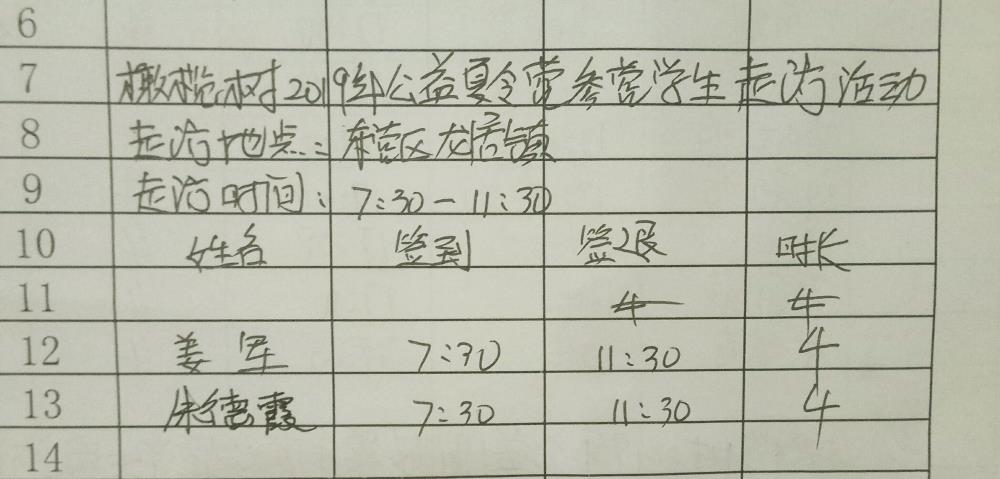 6
7 橄榄树2019年公益夏令营参营学生走访活动
8 走访地点：东营区龙居镇
9 走访时间：7:30-11:30
10 姓名 签到 签退 时长
11 4 4
12 姜军 7:30 11:30 4
13 朱德霞 7:30 11:30 4
14